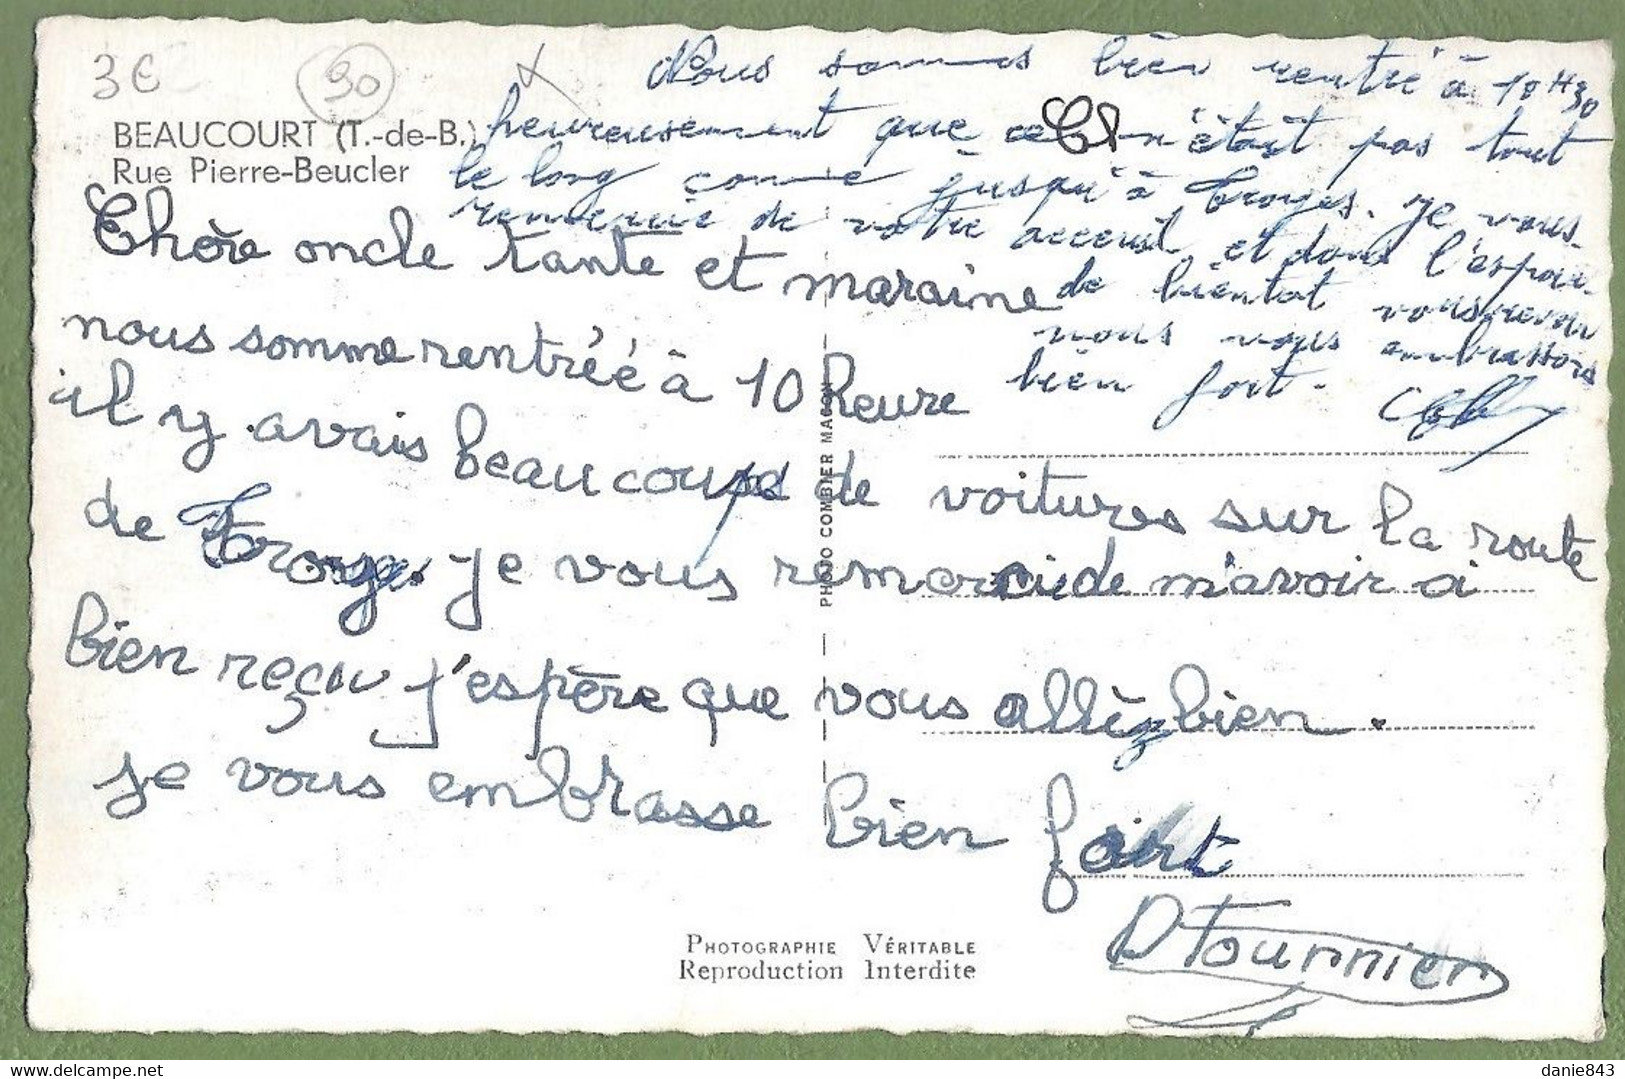 3€
90
BEAUCOURT (T.-de-B.)
Rue Pierre-Beucler
Nous sommes bien rentré à 10H30
heureusement que n'était pas tout
le long comme jusqu'à Troyes. Je vous
remercie de votre acceuil et dans l'espoir
de bientot vous revoir
nous vous embrassons
bien fort.
Chère oncle tante et maraine
nous somme rentréé à 10 heure
il y avais beaucoups de voitures sur la route
de Troyes. Je vous remercie de m'avoir si
bien reçu j'espère que vous allèz bien.
Je vous embrasse bien fort
D Fournier
PHOTO COMBIER MACON
PHOTOGRAPHIE VÉRITABLE
Reproduction Interdite
delcampe.net
danie843